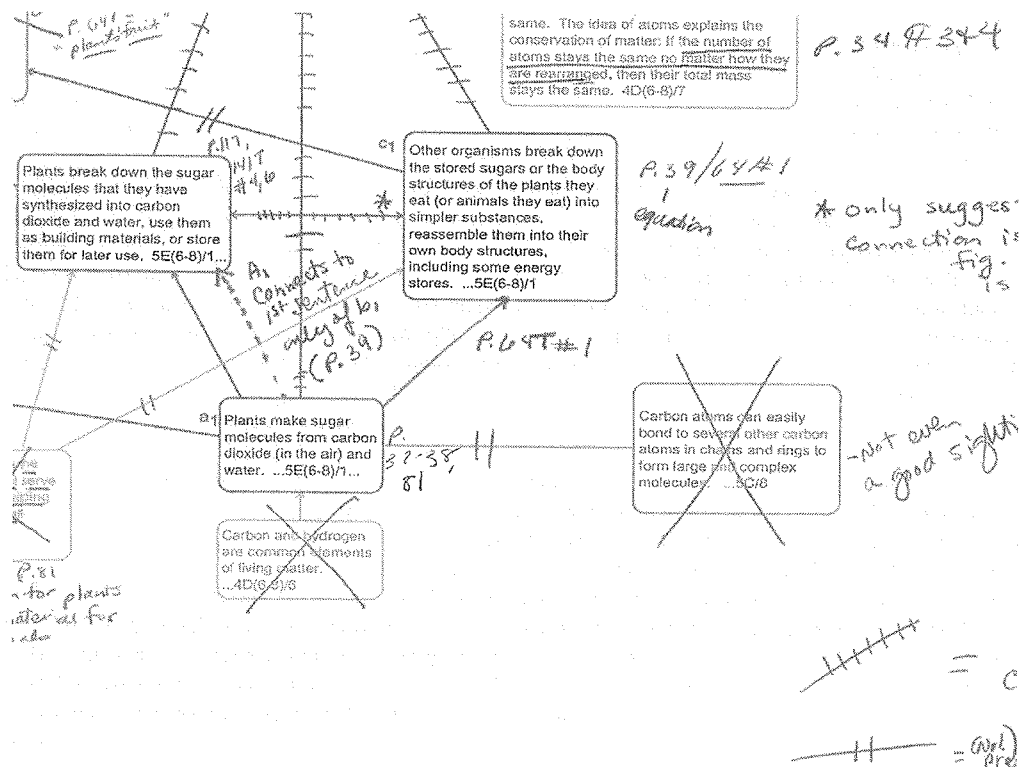 P. 64T =
"plants' fruit"
same. The idea of atoms explains the
conservation of matter: If the number of
atoms stays the same no matter how they
are rearranged, then their total mass
stays the same. 4D(6-8)/7
P. 34 # 3+4
P. 117,
#4,6
c1
Plants break down the sugar
molecules that they have
synthesized into carbon
dioxide and water, use them
as building materials, or store
them for later use. 5E(6-8)/1...
*
Other organisms break down
the stored sugars or the body
structures of the plants they
eat (or animals they eat) into
simpler substances,
reassemble them into their
own body structures,
including some energy
stores. ...5E(6-8)/1
P. 39/64 # 1
equation
* only sugges
connection is
fig.
is
A1
connects to
1st sentence
only of b1
(P. 39)
P. 64T #1
a1
Plants make sugar
molecules from carbon
dioxide (in the air) and
water. ...5E(6-8)/1...
P.
37-38,
81
Carbon atoms can easily
bond to several other carbon
atoms in chains and rings to
form large and complex
molecules. ...5C/8
- Not even
a good sighti
Carbon and hydrogen
are common elements
of living matter.
...4D(6-8)/6
serve
P. 81
for plants
aterial for
=
=